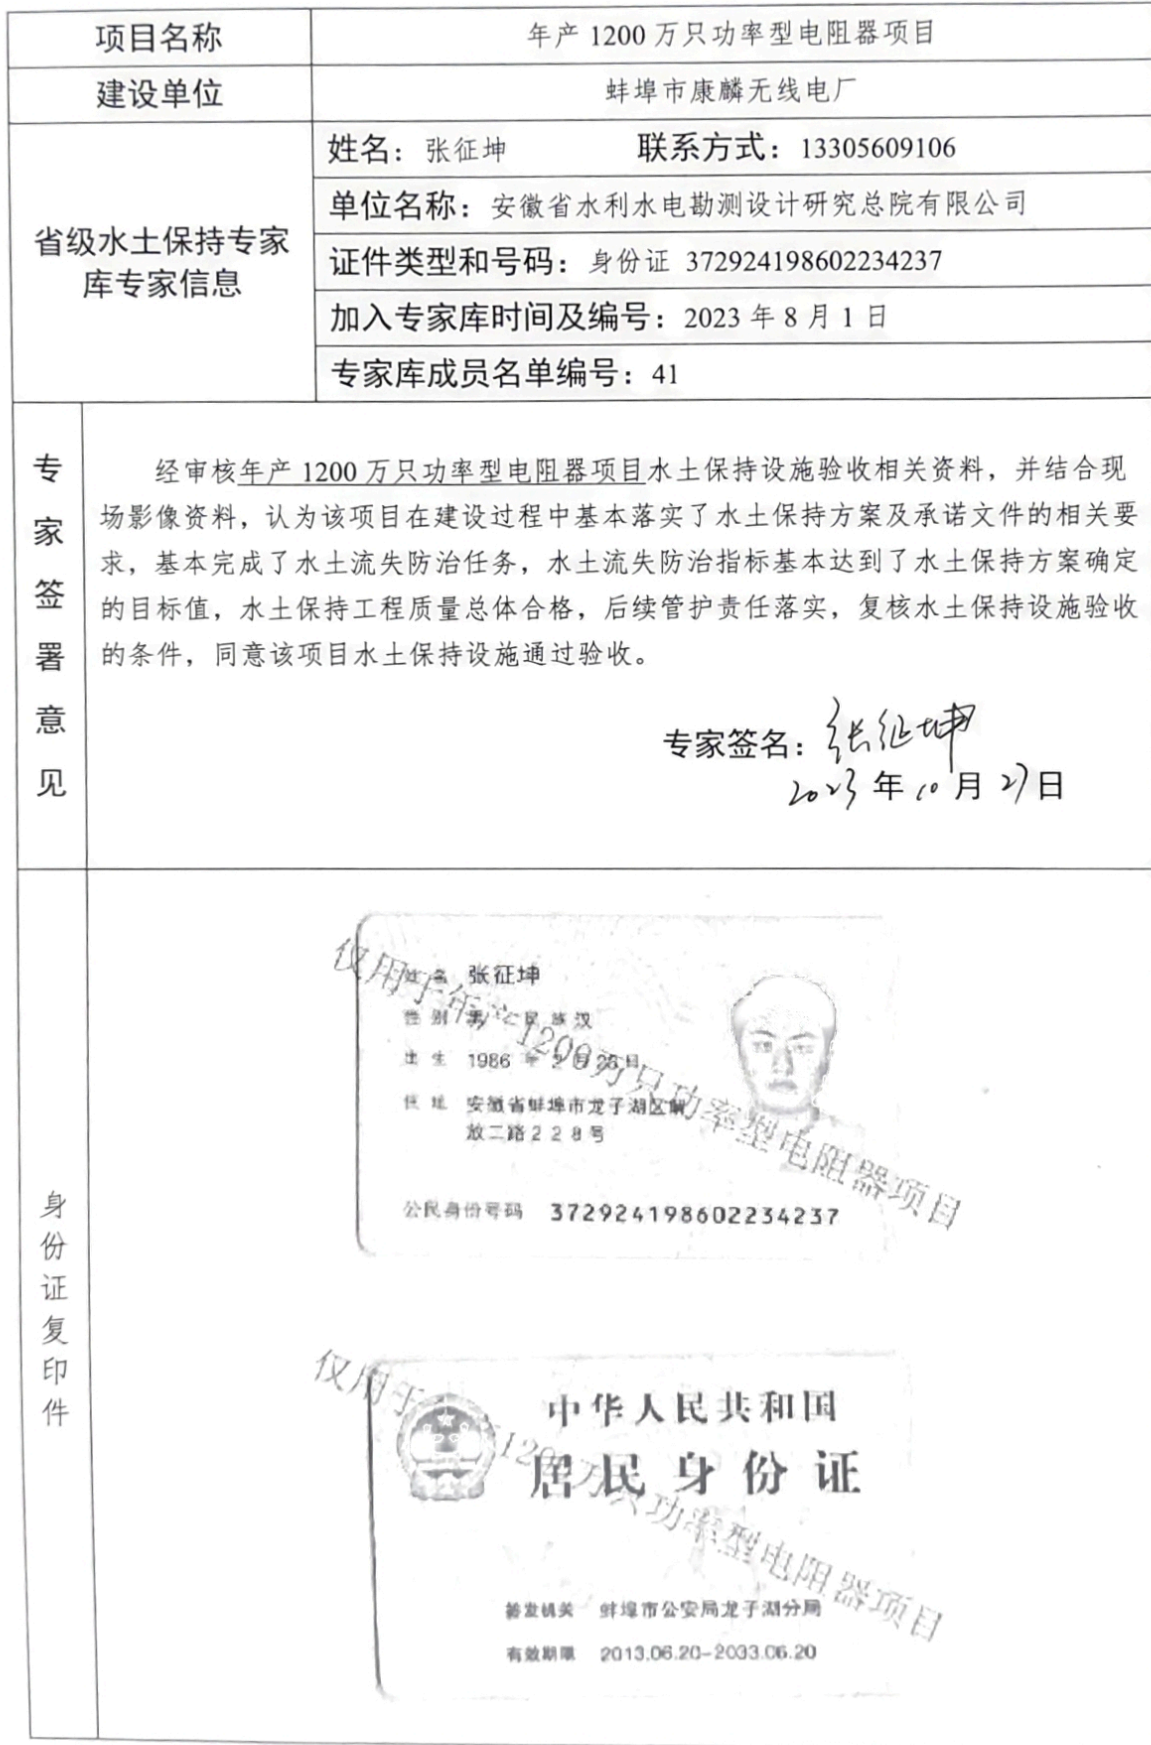 项目名称 年产 1200 万只功率型电阻器项目
建设单位 蚌埠市康麟无线电厂
省级水土保持专家
库专家信息
姓名：张征坤 联系方式：13305609106
单位名称：安徽省水利水电勘测设计研究总院有限公司
证件类型和号码：身份证 372924198602234237
加入专家库时间及编号：2023 年 8 月 1 日
专家库成员名单编号：41
专家签署意见
经审核年产 1200 万只功率型电阻器项目水土保持设施验收相关资料，并结合现
场影像资料，认为该项目在建设过程中基本落实了水土保持方案及承诺文件的相关要
求，基本完成了水土流失防治任务，水土流失防治指标基本达到了水土保持方案确定
的目标值，水土保持工程质量总体合格，后续管护责任落实，复核水土保持设施验收
的条件，同意该项目水土保持设施通过验收。
专家签名：张征坤
2023 年 10 月 27 日
身份证复印件
姓名 张征坤
性别 男 民族 汉
出生 1986 年 2 月 23 日
住址 安徽省蚌埠市龙子湖区解
放二路２２８号
公民身份号码 372924198602234237
仅用于年产1200万只功率型电阻器项目
中华人民共和国
居民身份证
签发机关 蚌埠市公安局龙子湖分局
有效期限 2013.06.20-2033.06.20
仅用于年产1200万只功率型电阻器项目